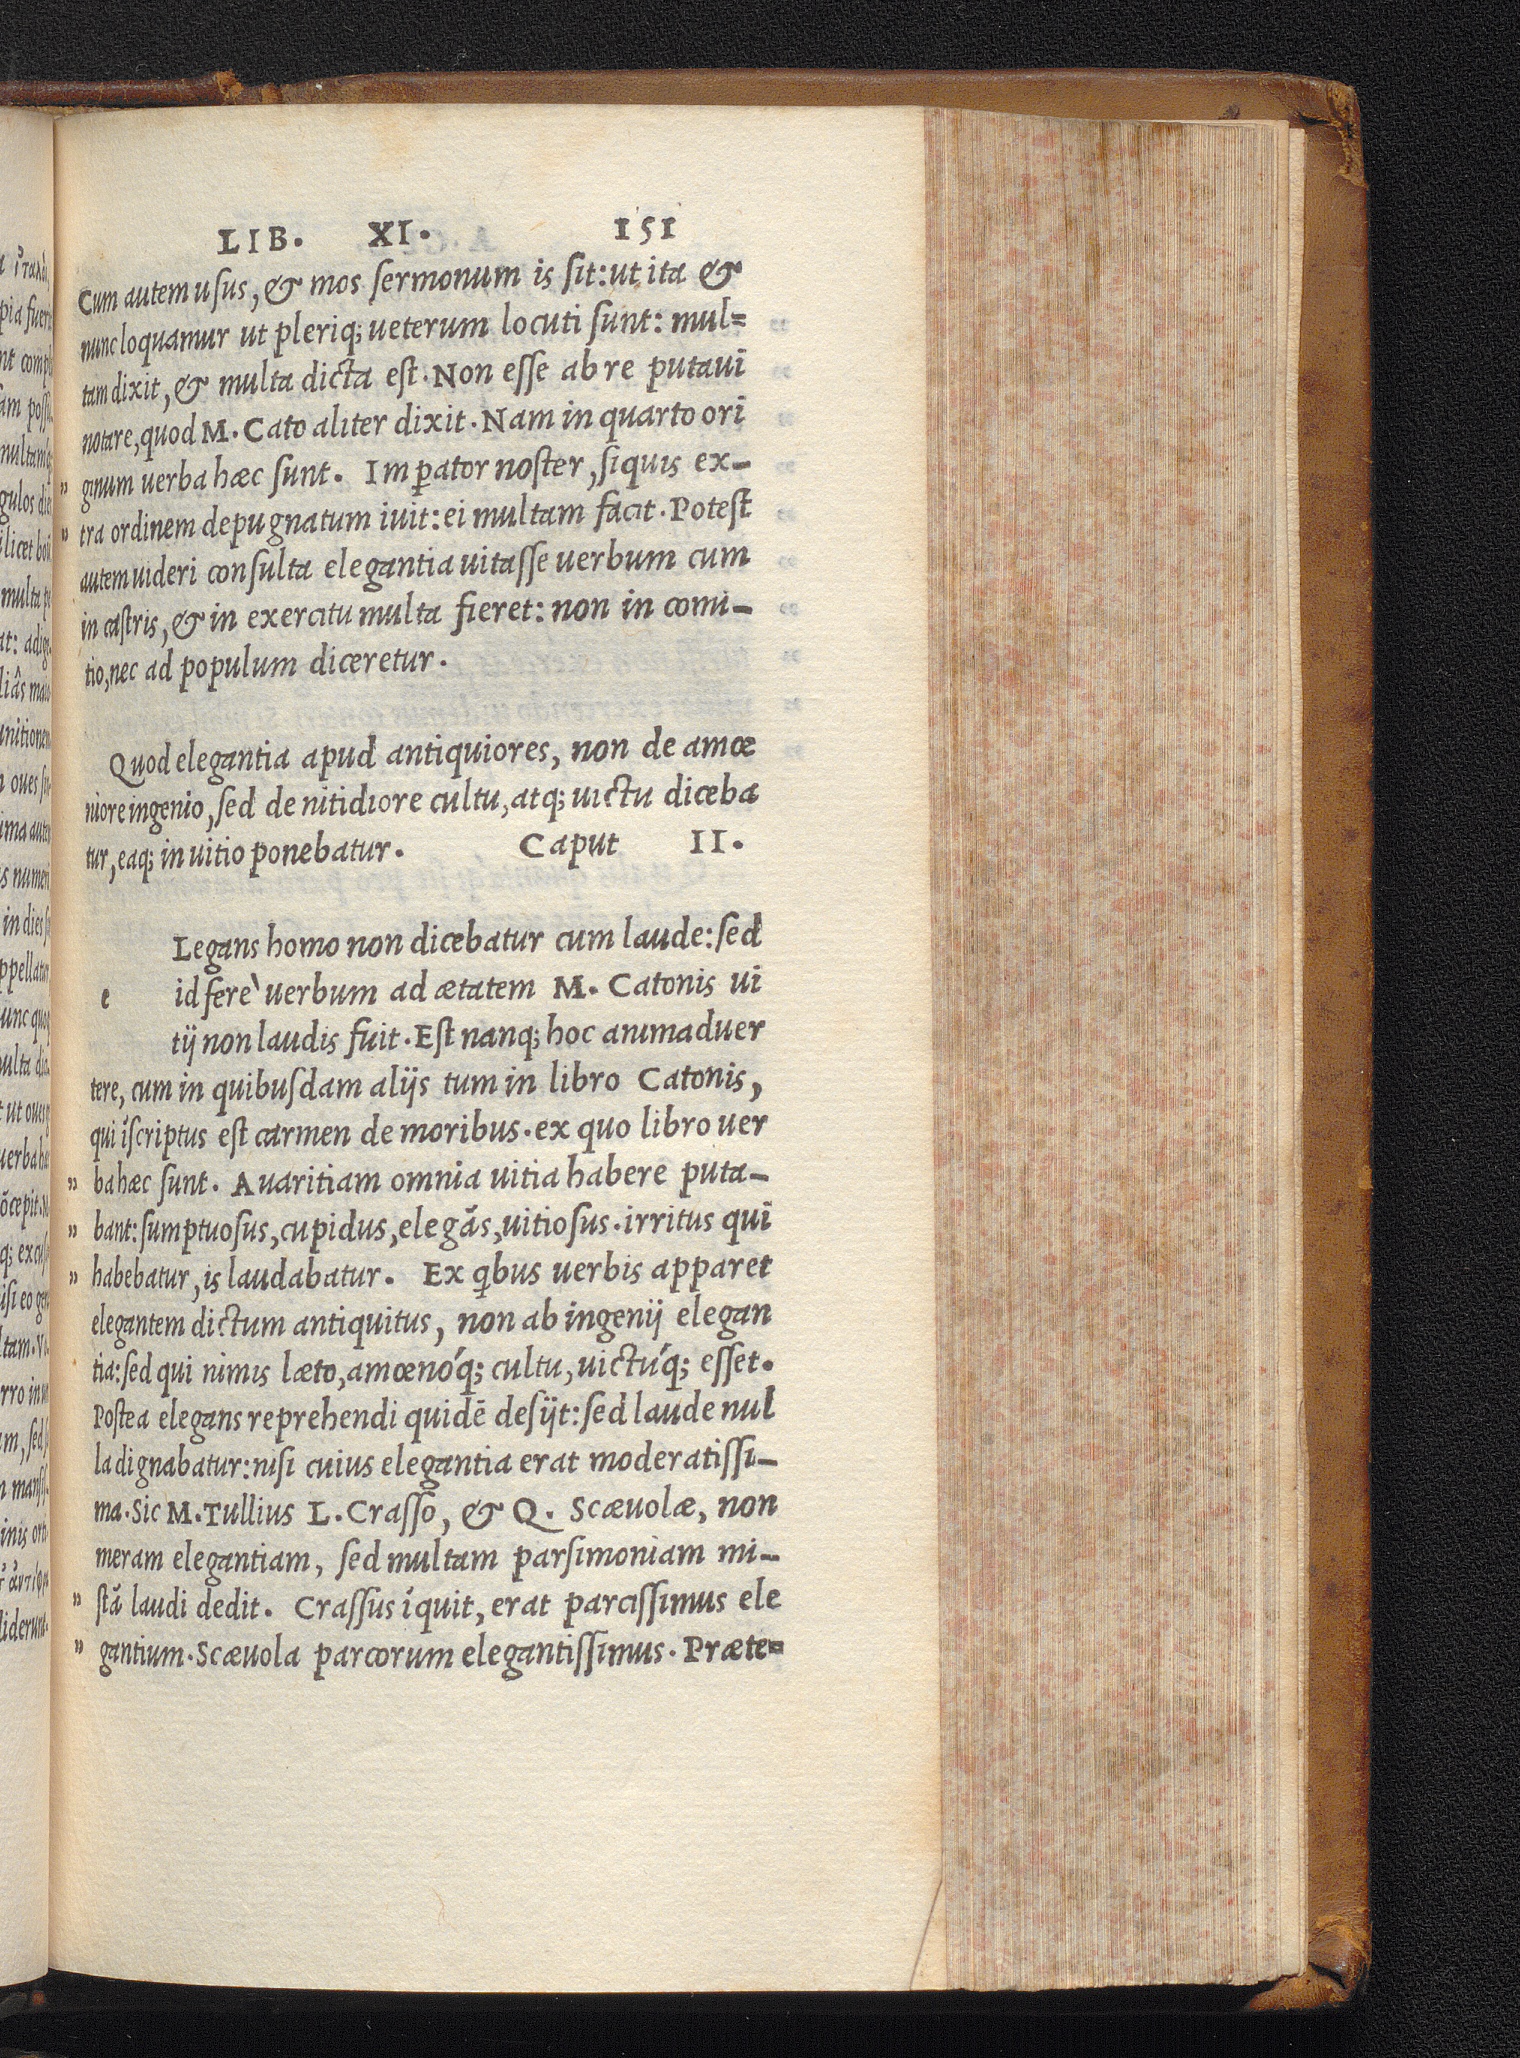 LIB. XI. 151
Cum autem usus, & mos sermonum is sit: ut ita &
nunc loquamur ut pleriq; ueterum locuti sunt: mul=
tam dixit, & multa dicta est. Non esse ab re putaui
notare, quod M. Cato aliter dixit. Nam in quarto ori
„ ginum uerba hæc sunt. Imꝑator noster, siquis ex-
„ tra ordinem depugnatum iuit: ei multam facit. Potest
autem uideri consulta elegantia uitasse uerbum cum
in castris, & in exercitu multa fieret: non in comi-
tio, nec ad populum diceretur.
Quod elegantia apud antiquiores, non de amœ
niore ingenio, sed de nitidiore cultu, atq; uictu diceba
tur, eaq; in uitio ponebatur. Caput II.
Legans homo non dicebatur cum laude: sed
e id ferè uerbum ad ætatem M. Catonis ui
tij non laudis fuit. Est nanq; hoc animaduer
tere, cum in quibusdam alijs tum in libro Catonis,
qui īscriptus est carmen de moribus. ex quo libro uer
„ ba hæc sunt. Auaritiam omnia uitia habere puta-
„ bant: sumptuosus, cupidus, elegās, uitiosus. irritus qui
„ habebatur, is laudabatur. Ex qbus uerbis apparet
elegantem dictum antiquitus, non ab ingenij elegan
tia: sed qui nimis læto, amœnóq; cultu, uictúq; esset.
Postea elegans reprehendi quidē desijt: sed laude nul
la dignabatur: nisi cuius elegantia erat moderatissi-
ma. Sic M. Tullius L. Crasso, & Q. Scæuolæ, non
meram elegantiam, sed multam parsimoniam mi-
„ stā laudi dedit. Crassus īquit, erat parcissimus ele
„ gantium. Scæuola parcorum elegantissimus. Præte=